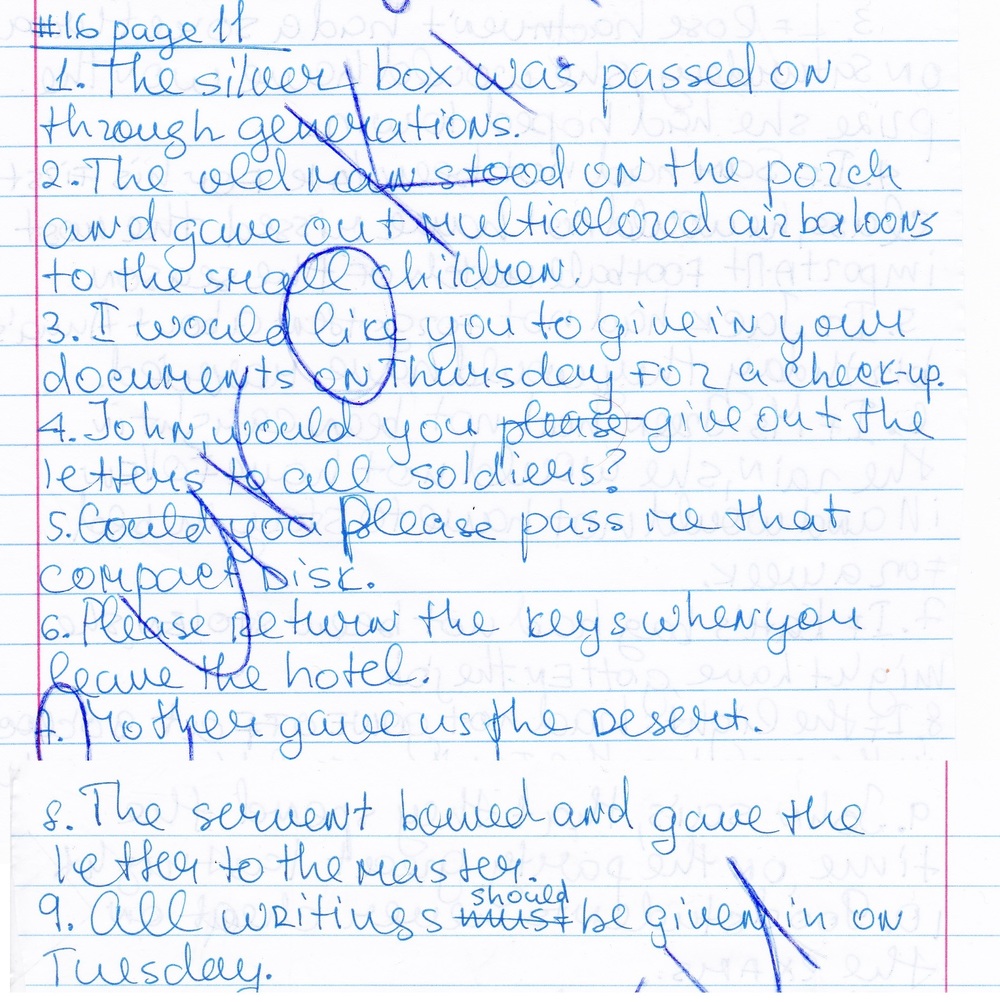 #16 page 11
1. The silver box was passed on
through generations.
2. The old man stood on the porch
and gave out multicolored air baloons
to the small children.
3. I would like you to give in your
documents on Thursday for a check-up.
4. John, would you please give out the
letters to all soldiers?
5. Could you Please pass me that
compact Disk.
6. Please Return the keys when you
leave the hotel.
7. Mother gave us the Desert.
8. The servent bowed and gave the
letter to the master.
9. All writings must should be given in on
Tuesday.